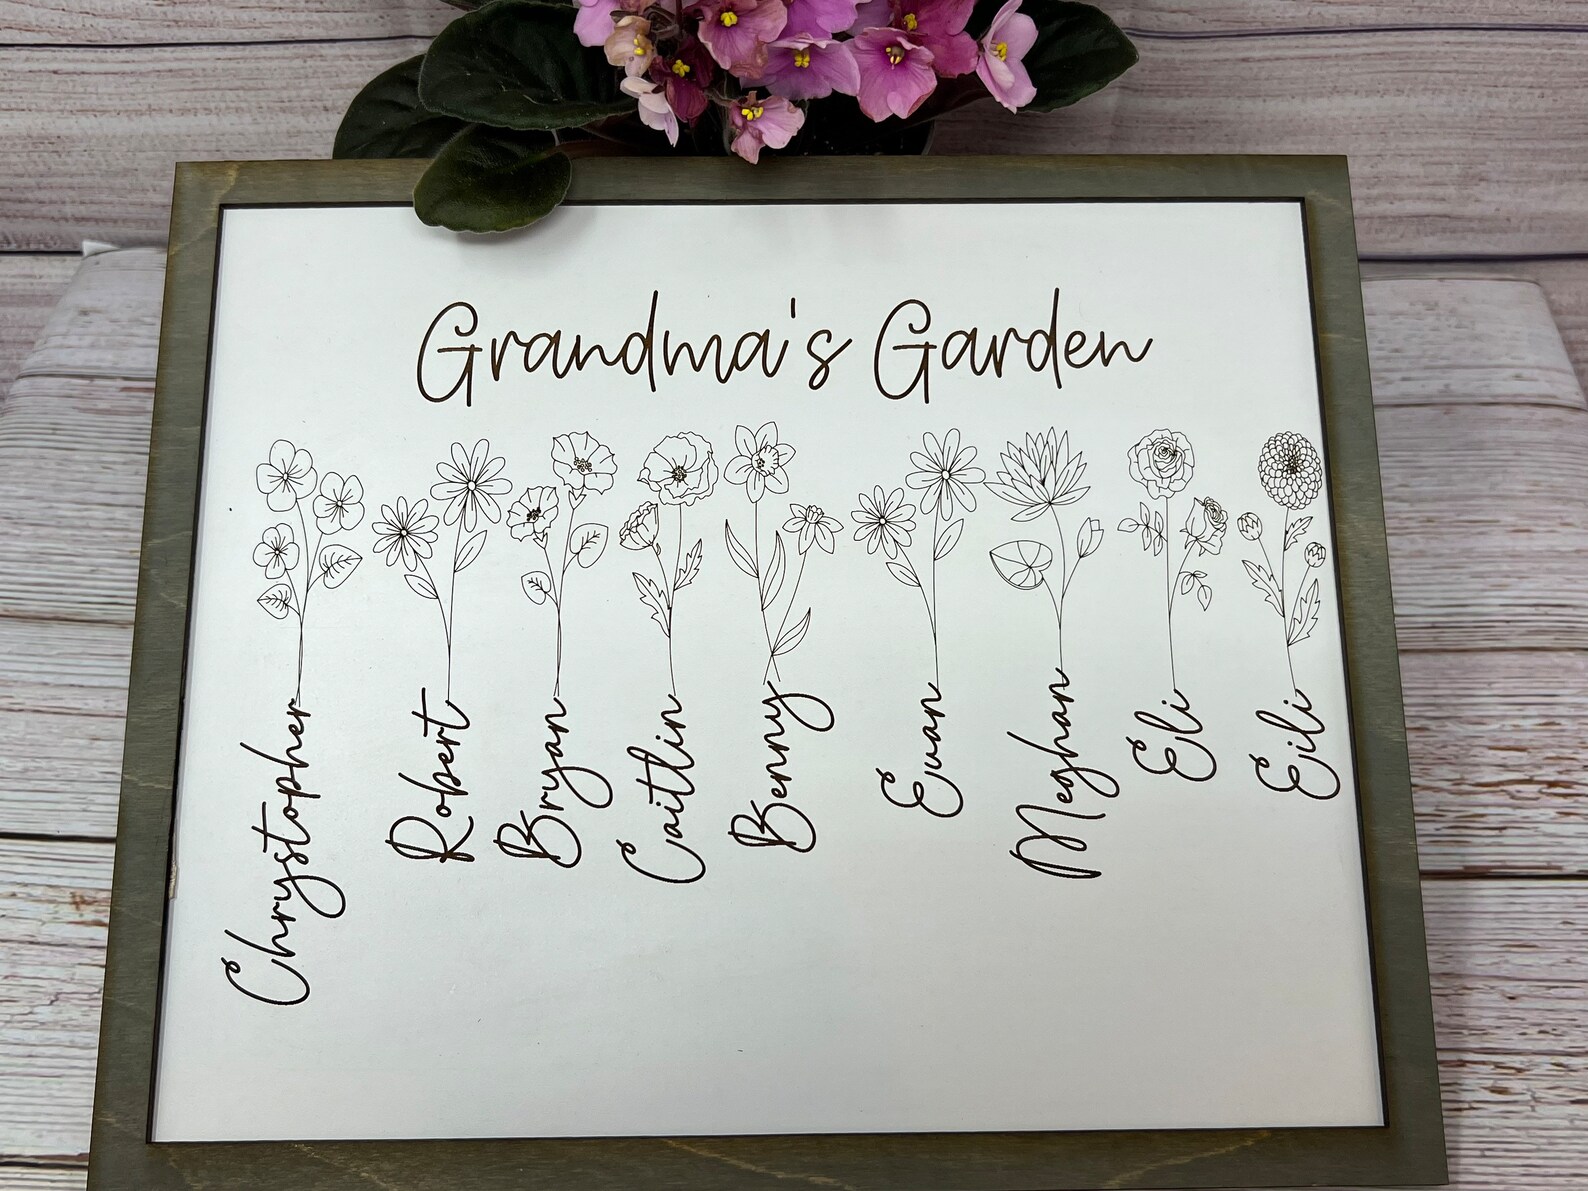 Grandma's Garden
Chrystopher
Robert
Bryan
Caitlin
Benny
Evan
Meghan
Eli
Eili